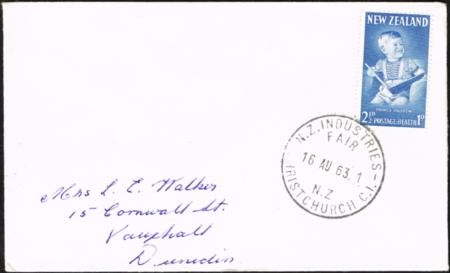 NEW ZEALAND
PRINCE ANDREW
2½D POSTAGE-HEALTH 1D
N.Z. INDUSTRIES-
FAIR
16 AU 63.1
N.Z
CHRISTCHURCH C.1.-
Mrs L. E. Walker
15 Cornwall St.
Vauxhall
Dunedin